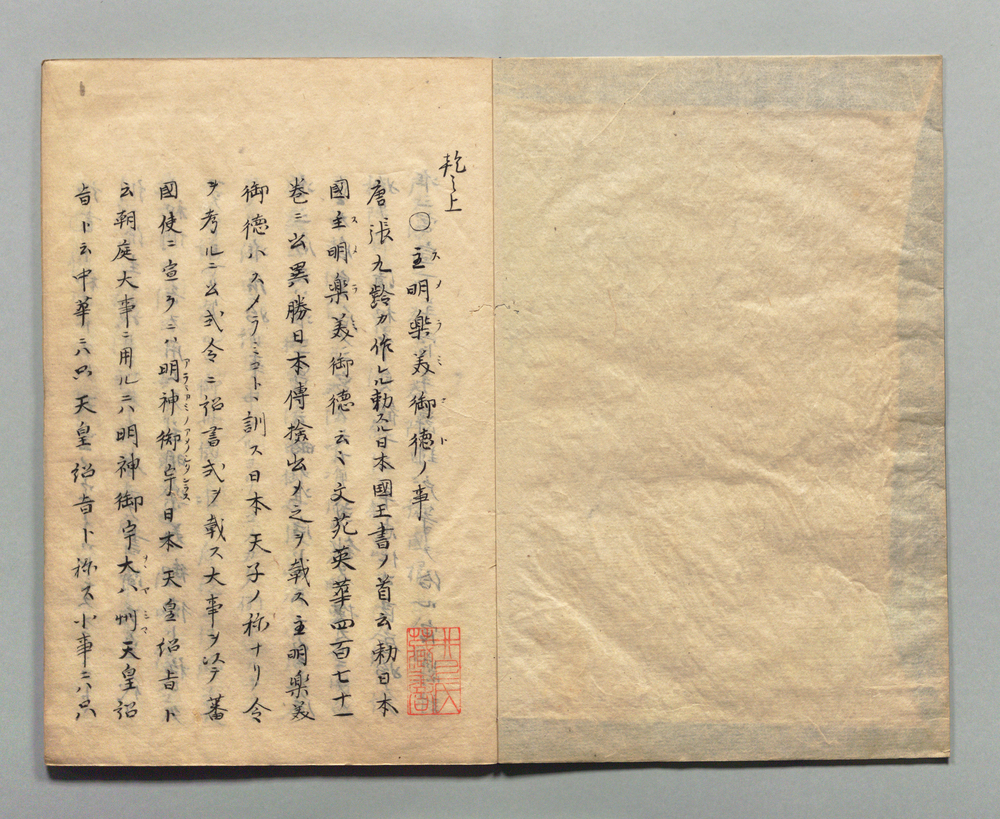 乾之上
〇主明楽美御徳ノ事
スメラミコト
唐張九齢カ作レル勅スル日本國王書ノ首云勅日本
國主明楽美御徳云々文苑英華四百七十一
スメラミ
巻ニ出異勝日本傳捨出メ之ヲ戴ス主明楽美
御徳ハスメラミコトヽ訓ス日本天子ノ称ナリ令
ヲ考ルニ公式令ニ詔書式ヲ戴ス大事ヲ以テ蕃
國使ニ宣ラニハ明神御宇日本天皇詔旨ト
云朝庭大事ニ用ルニハ明神御宇大八州天皇詔
旨ト云中華ニハ只天皇詔旨ト称ス小事ニハ只